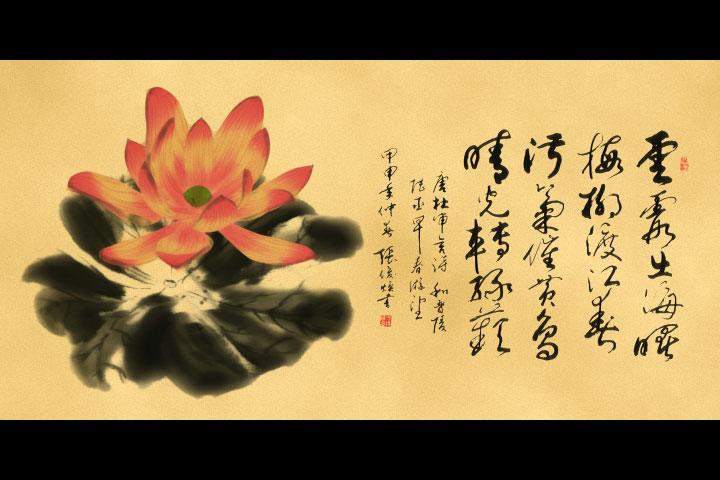 雲霞出海曙
梅柳渡江春
淑氣催黃鳥
晴光轉綠蘋
唐杜審言詩 和晉陵
陸丞早春游望
甲申年仲春 張俊書